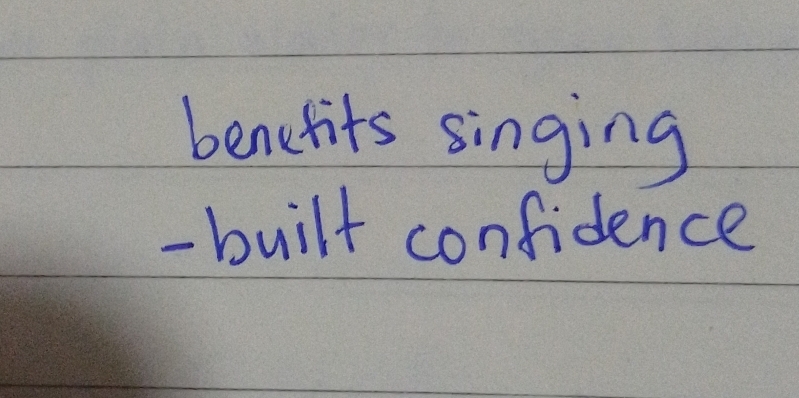 benefits singing
- built confidence